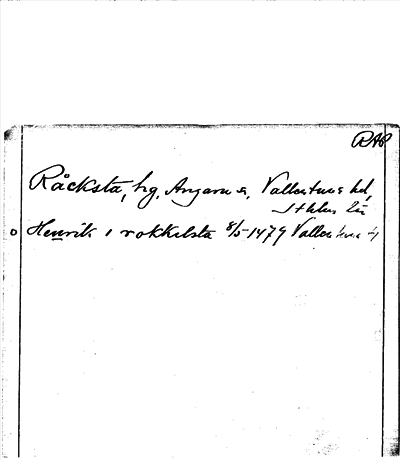 RAP
Råcksta, hg, Angarns, Vallentuna hd,
Sthlms län
Henrik i rokkelsta 8/5 1479 Vallentuna